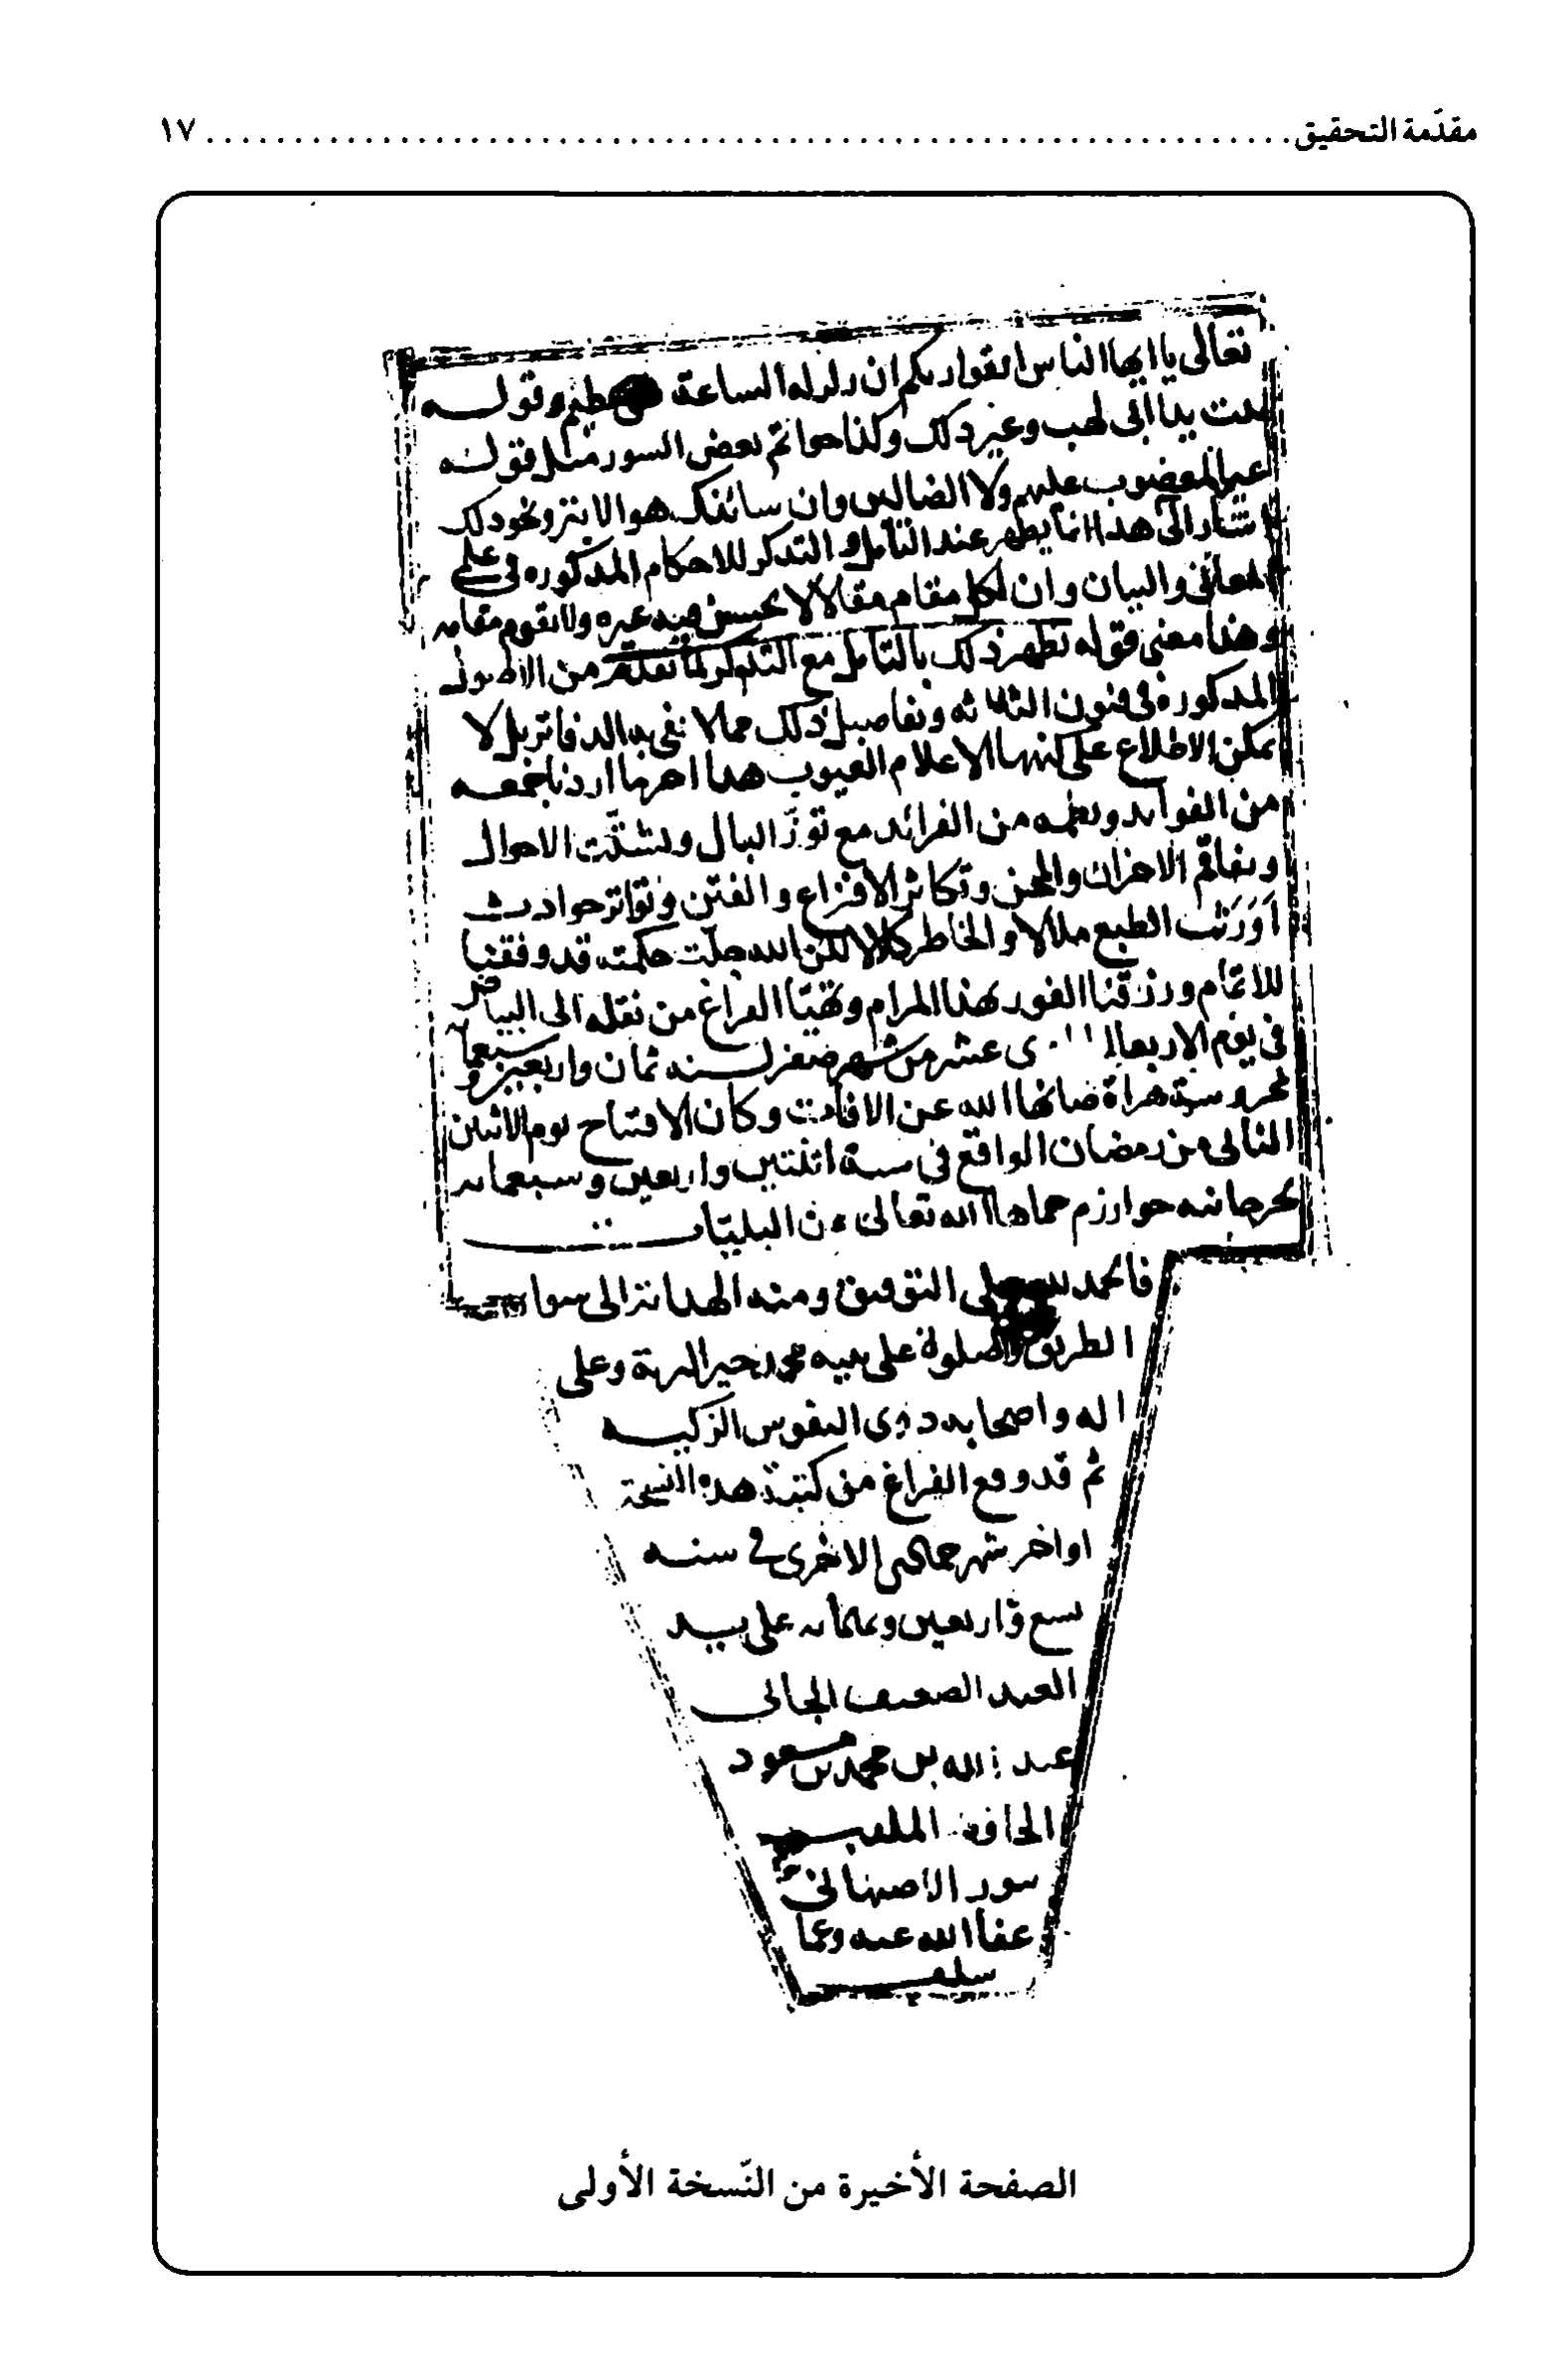 مقدّمة التحقيق ........ ١٧
تعالى يا ايها الناس اتقوا ربكم ان زلزلة الساعة عظيم وقوله
تبت يدا ابى لهب وغير ذلك وكذا خواتم بعض السور مثل قوله
غير المغضوب عليهم ولا الضالين وان شانئك هو الابتر ونحو ذلك
اشار الى هذا انما يظهر عند التامل والتذكر للاحكام المذكورة فى علمى
المعانى والبيان وان لكل مقام مقالا لا يحسن فيه غيره ولا تقوم مقامه
وهذا معنى قوله يظهر ذلك بالتامل مع التذكر لما تقدم من الاصول
المذكورة فى فنون الثلاثه وتفاصيل ذلك مما لا تفى به الدفاتر بل لا
يمكن الاطلاع على كنهها الا علام الغيوب هذا اخر ما اردنا جمعه
من الفوائد ونظمه من الفرائد مع توزّ البال وتشتّت الاحوال
وتفاقم الاحزان والمحن وتكاثر الافزاع والفتن وتواتر حوادث
اَوْرَثت الطبع ملالا والخاطر كلالا لكن الله جلّت حكمته قد وفقنا
للاتمام ورزقنا الفوز بهذا المرام وتهيّا الفراغ من نقله الى البياض
فى يوم الاربعا ى عشر من شهر صفر لسنه ثمان واربعين وسبعمائه
بمحروسة هراة صانها الله عن الافات وكان الافتتاح يوم الاثنين
الثانى من رمضان الواقع فى سنة اثنتين واربعين وسبعمائه
بجرجانيه خوارزم حماها الله تعالى من البليّات
فالحمد لله على التوفيق ومنه الهداية الى سواء
الطريق والصلوة على نبيه محمد خير البرية وعلى
اله واصحابه ذوى النفوس الزكيه
ثم قد وقع الفراغ من كتبة هذه النسخة
اواخر شهر جمادى الاخرى فى سنه
واربعين وثمانمائه على يد
العبد الضعيف الجانى
عبد الله بن محمد بن مسعود
الملقب
الاصفهانى
عفا الله عنه وعما
سلف
الصفحة الأخيرة من النّسخة الأولى